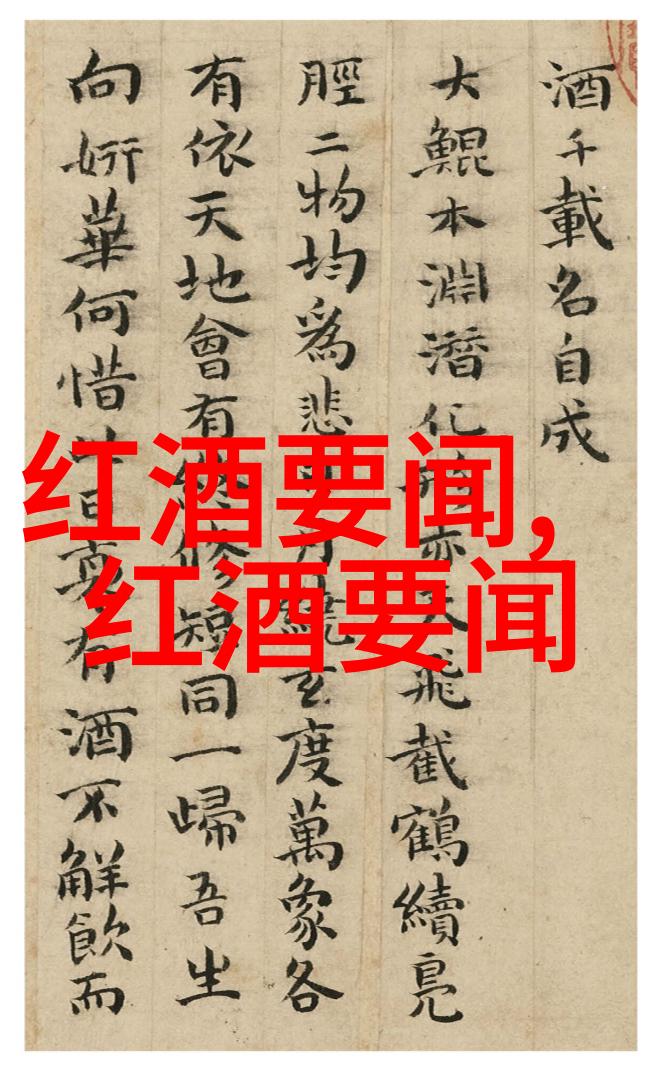 酒千載名自成
大鯤本淵潛化亦天飛截鶴續鳧
脛二物均爲悲月玄度萬象各
有依天地會有終脩短同一歸吾生
向妍華何惜日真有酒不解飲而
红酒要闻,
红酒要闻